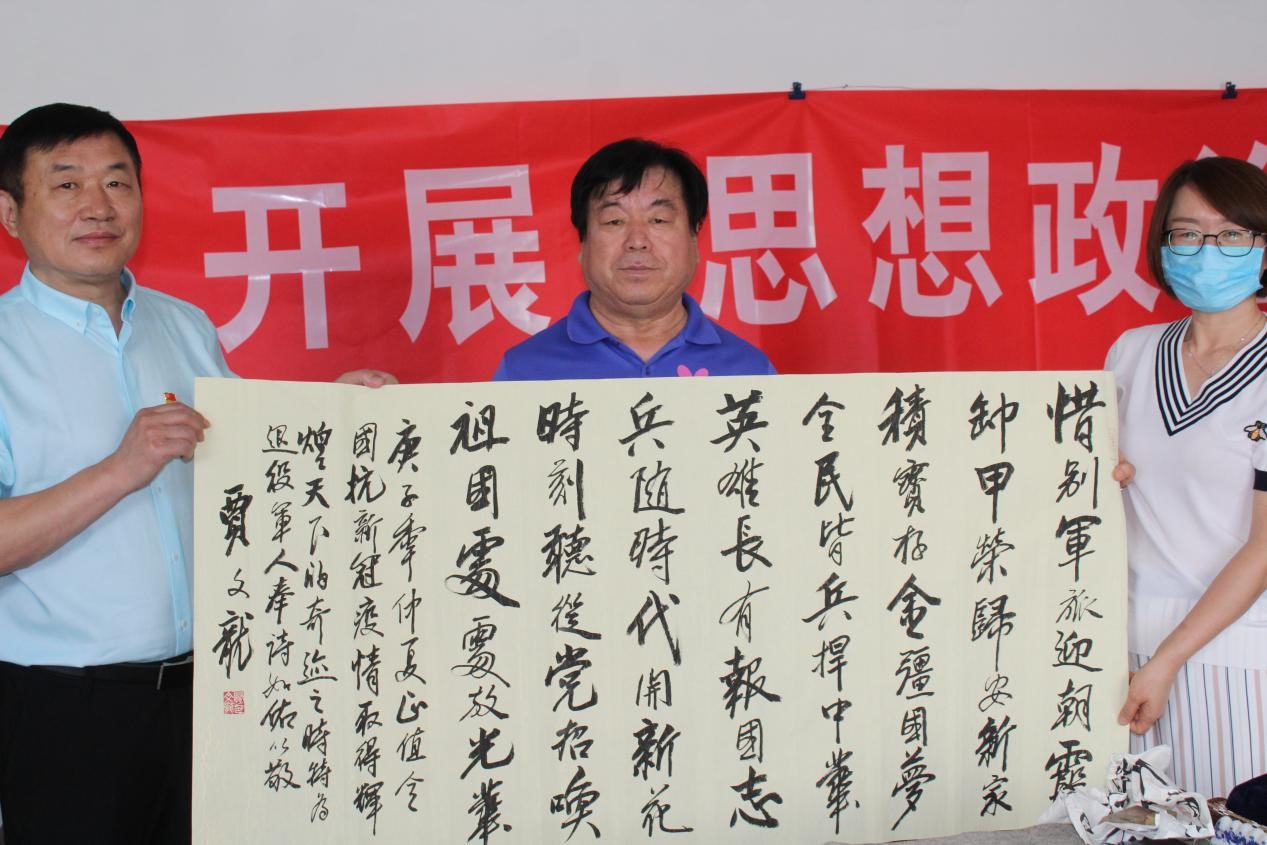 开展 思想政
惜别軍旅迎朝霞
卸甲榮歸安新家
積寶存金彊國夢
全民皆兵捍中華
英雄長有報國志
兵随時代開新花
時刻聽從党招唤
祖國處處放光華
庚子秊仲夏正值全
國抗新冠疫情取得輝
煌天下的奇迹之時特为
退役軍人奉诗如佑以敬
賈文龍